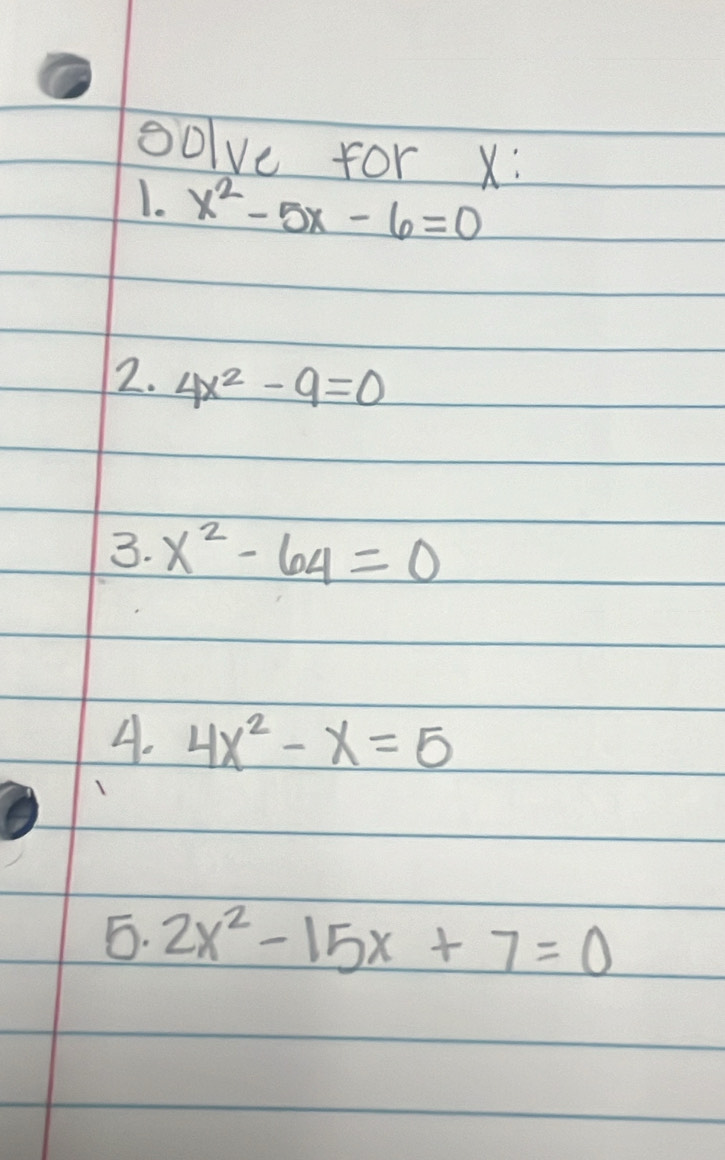 Solve for x:
1. x² - 5x - 6 = 0
2. 4x² - 9 = 0
3. x² - 64 = 0
4. 4x² - x = 5
5. 2x² - 15x + 7 = 0